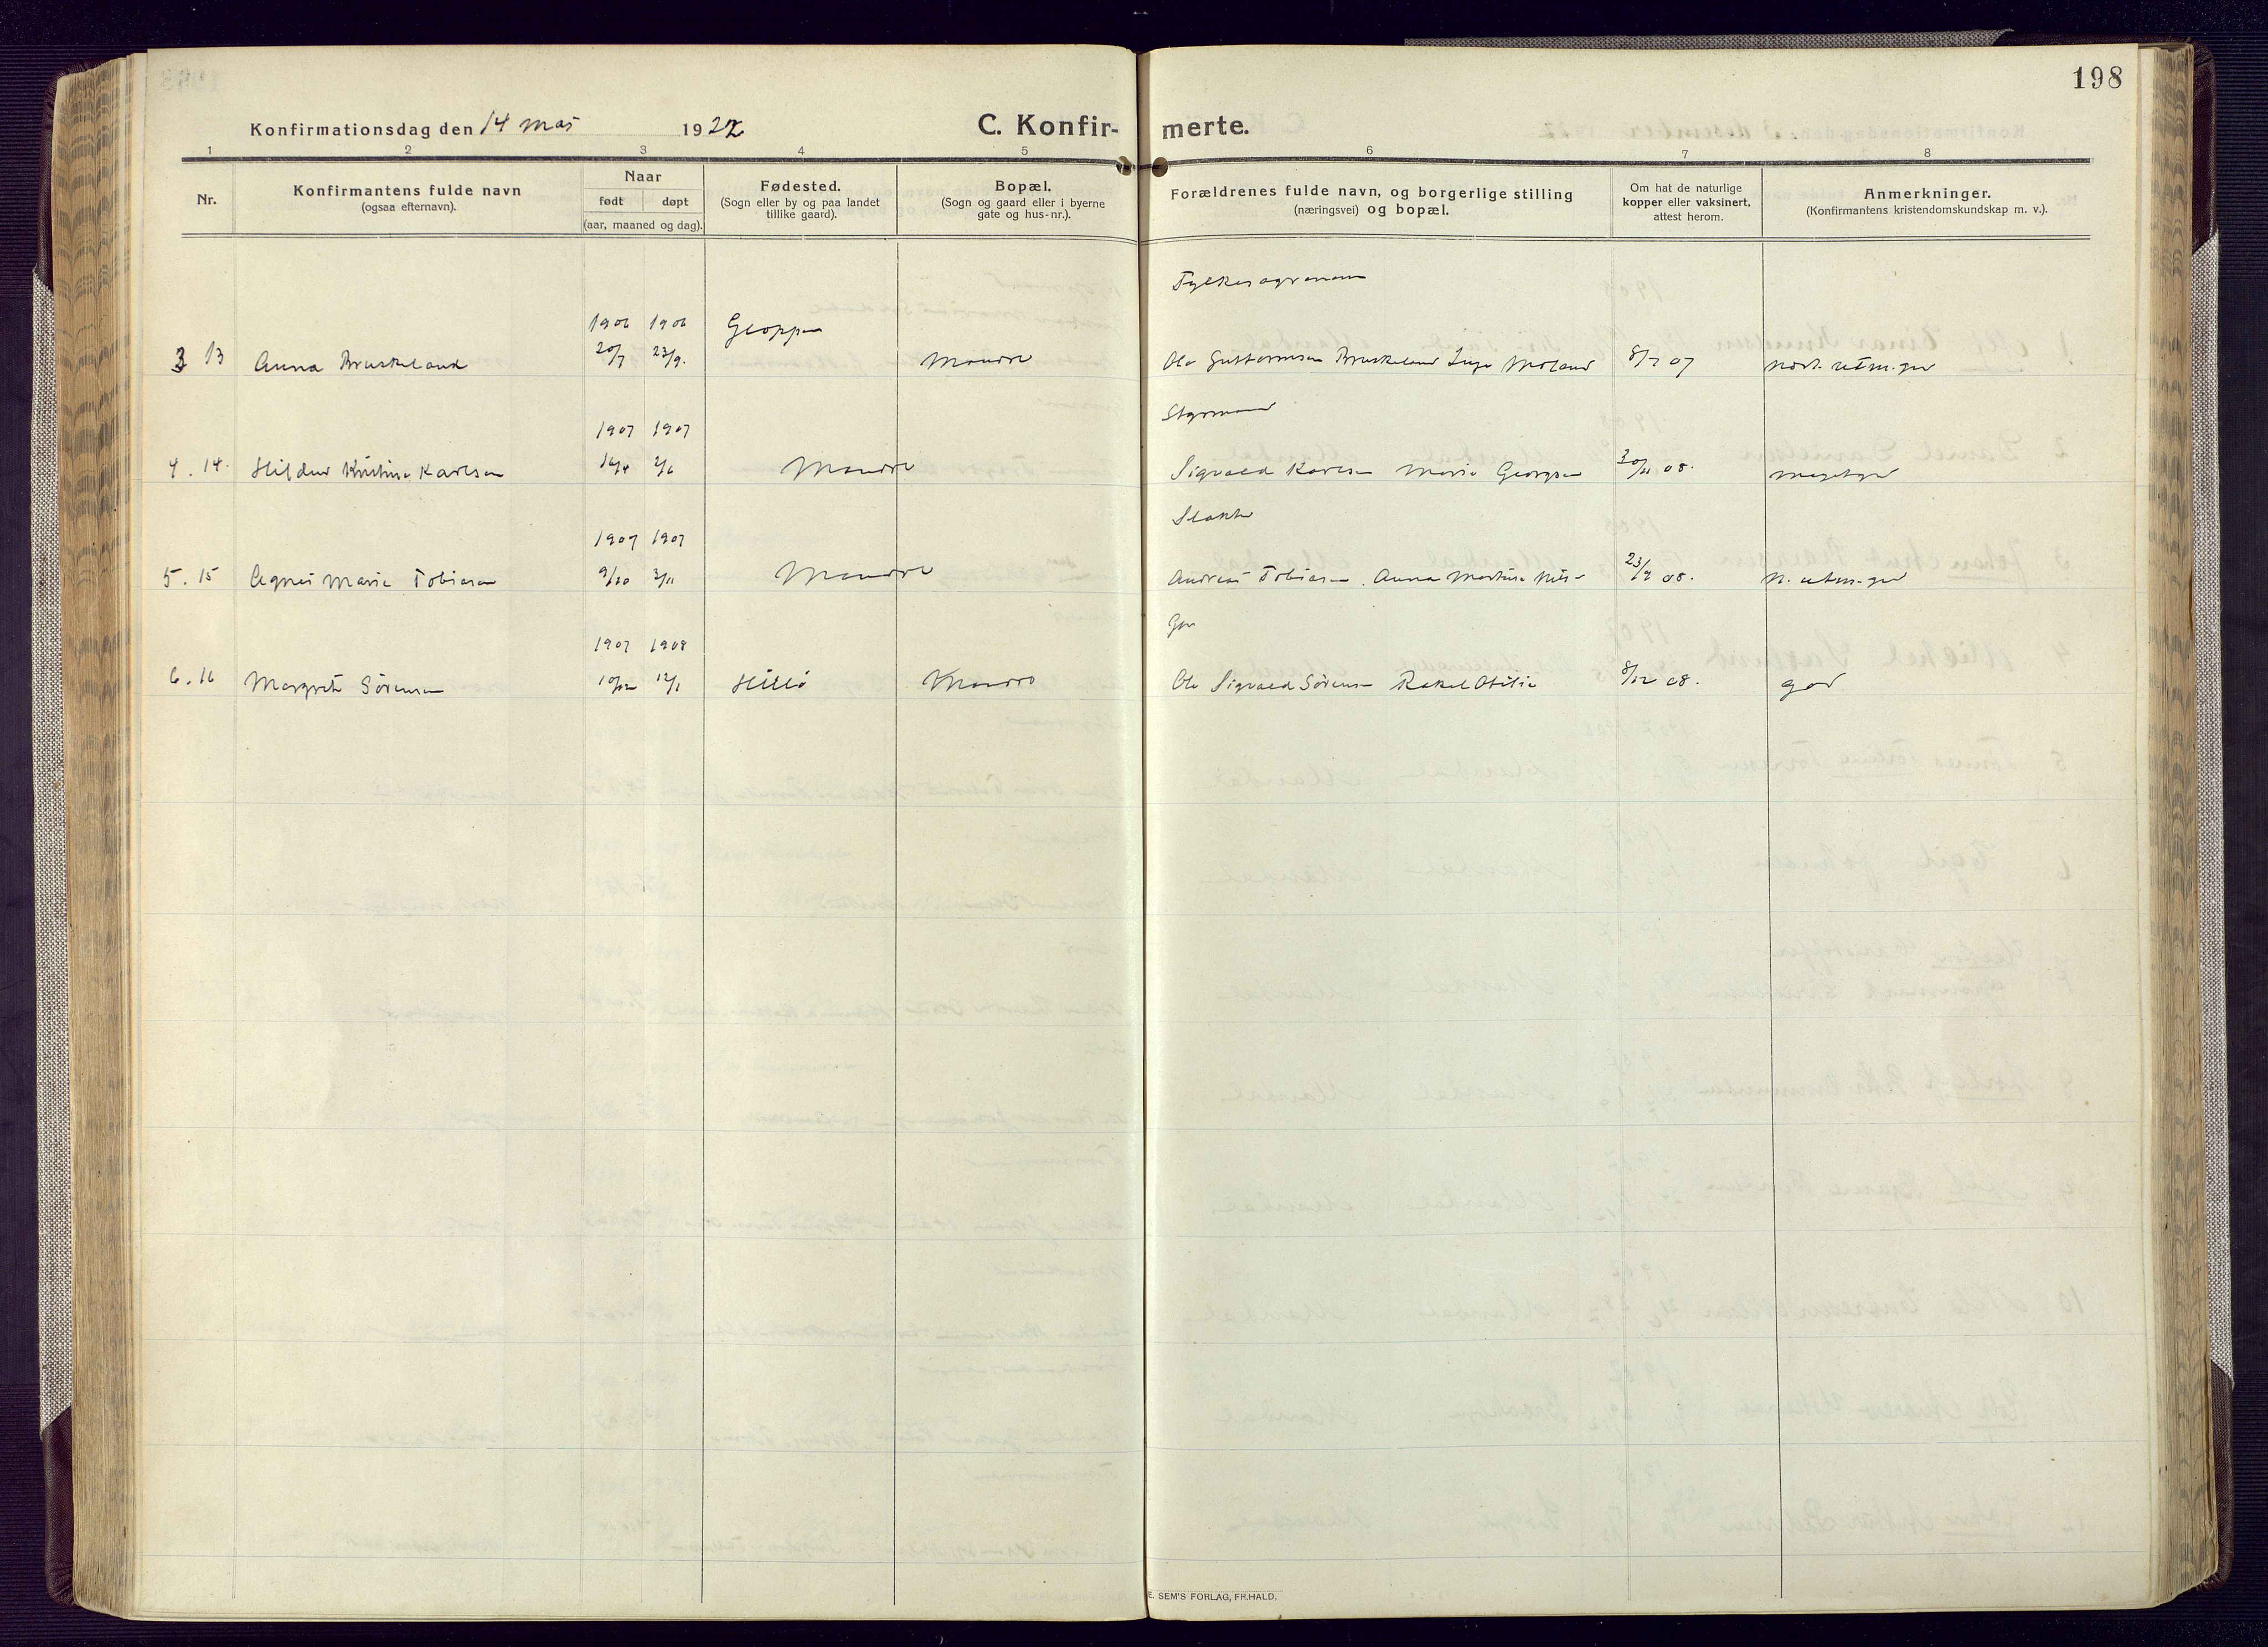 198
Konfirmationsdag den 14 mai 1922
C. Konfir-
merte.
1 2 3 4 5 6 7 8
Nr.
Konfirmantens fulde navn
(ogsaa efternavn).
Naar
født døpt
(aar, maaned og dag).
Fødested.
(Sogn eller by og paa landet
tillike gaard).
Bopæl.
(Sogn og gaard eller i byerne
gate og hus-nr.).
Forældrenes fulde navn, og borgerlige stilling
(næringsvei) og bopæl.
Om hat de naturlige
kopper eller vaksinert,
attest herom.
Anmerkninger.
(Konfirmantens kristendomskundskap m. v.).
Fylkesagronom
1906 1906
3 13 Anna Bruskeland 20/7 23/9. Mandal Ola Guttormsen Bruskeland Moland 8/7 07
Styrmand
1907 1907
4. 14. Hildur Kristine Karlsen 16/4 2/6 Mandal Sigvald Karlsen Marie Georgsen 30/11 08. megetgod
Slakter
1907 1907
5. 15 Agnes Marie Tobiasen 9/10 3/11 Mandal Andreas Tobiasen, Anna Martine 23/9 08. N. utm. god
1907 1908
6. 16 Margrete Sørensen 10/12 12/1 Hillø Mandal Ole Sigvald Sørensen Rakel Otilie 8/12 08. god
E. SEM'S FORLAG, FR.HALD.